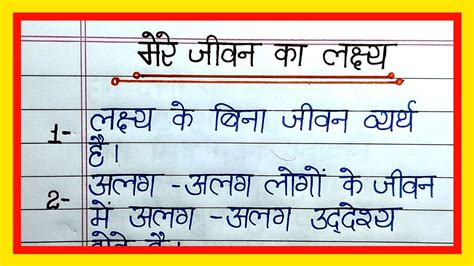 मेरे जीवन का लक्ष्य
1- लक्ष्य के बिना जीवन व्यर्थ
है।
2- अलग -अलग लोगों के जीवन
में अलग -अलग उद्देश्य
होते है।